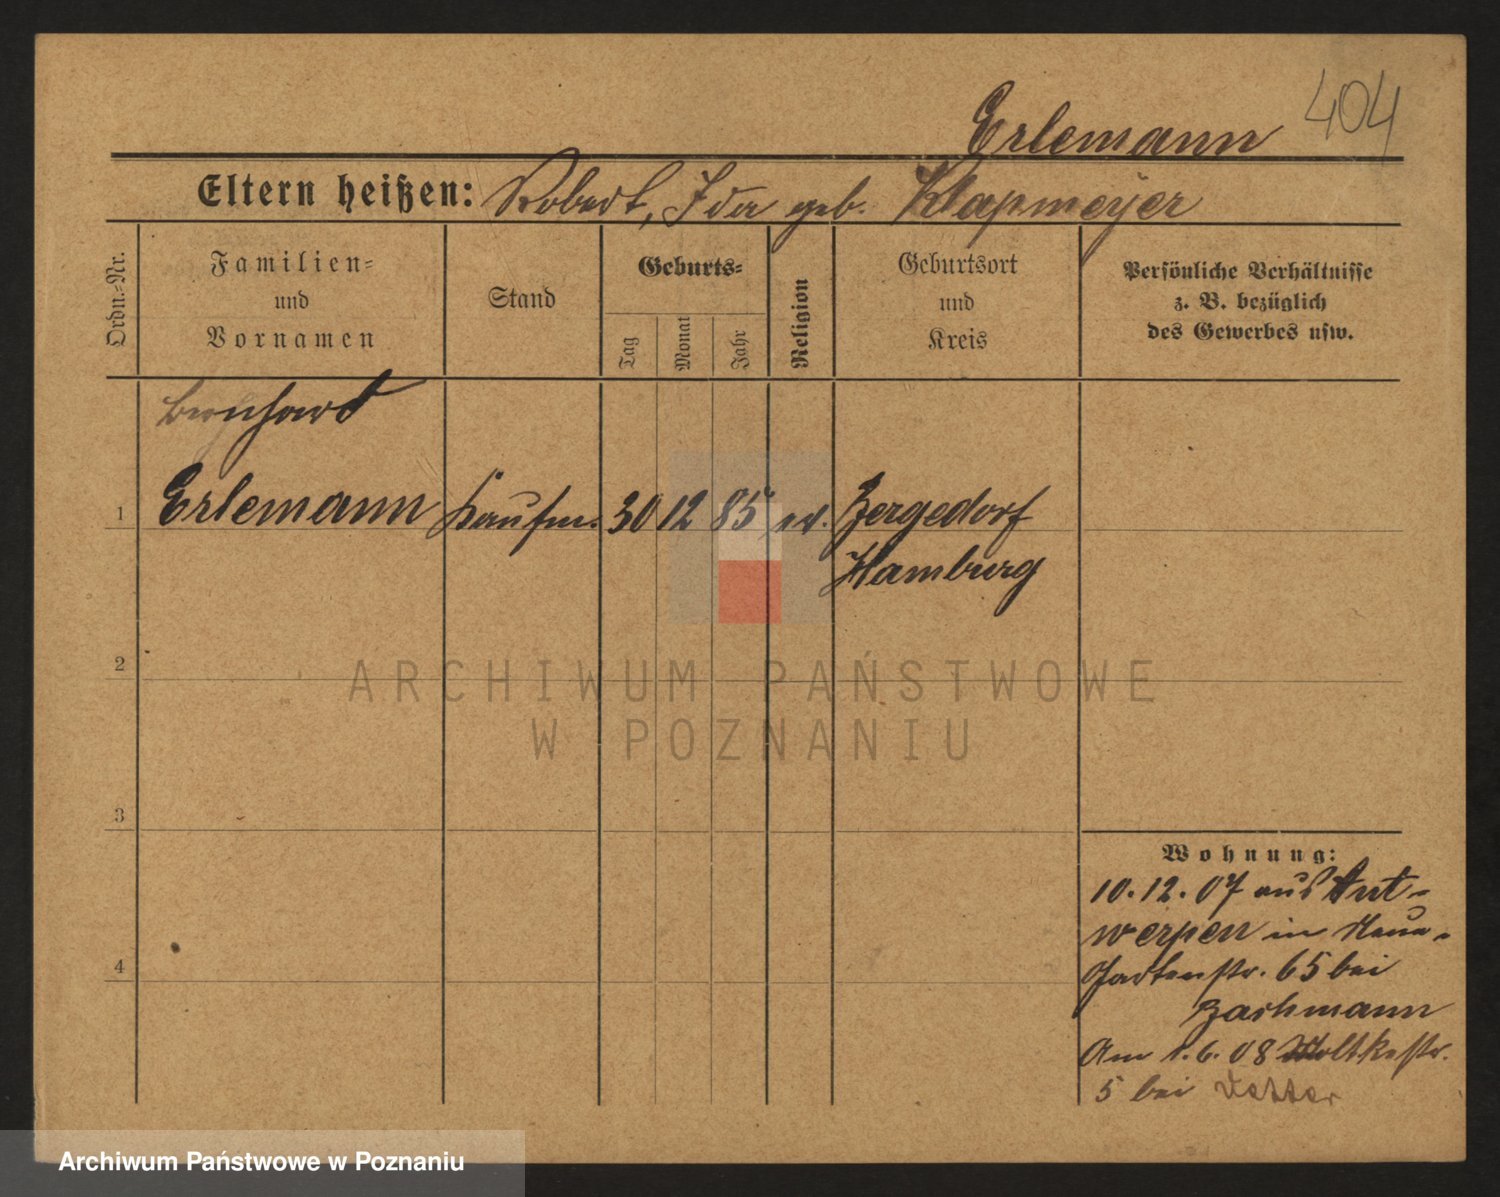 Erlemann 404
Eltern heißen: Robert, Ida geb. Klapmeyer
Ordn.-Nr.
Familien-
und
Vornamen
Stand
Geburts-
Tag
Monat
Jahr
Religion
Geburtsort
und
Kreis
Persönliche Verhältnisse
z. B. bezüglich
des Gewerbes usw.
Bernhard
1 Erlemann Kaufm. 30 12 85 ev. Bergedorf
Hamburg
2
3
4
Wohnung:
10.12.07 aus Ant-
werpen in Neue-
Gartenstr. 65 bei
Bachmann
Am 1.6.08 Moltkestr.
5 bei Vetter
ARCHIWUM PAŃSTWOWE
W POZNANIU
Archiwum Państwowe w Poznaniu